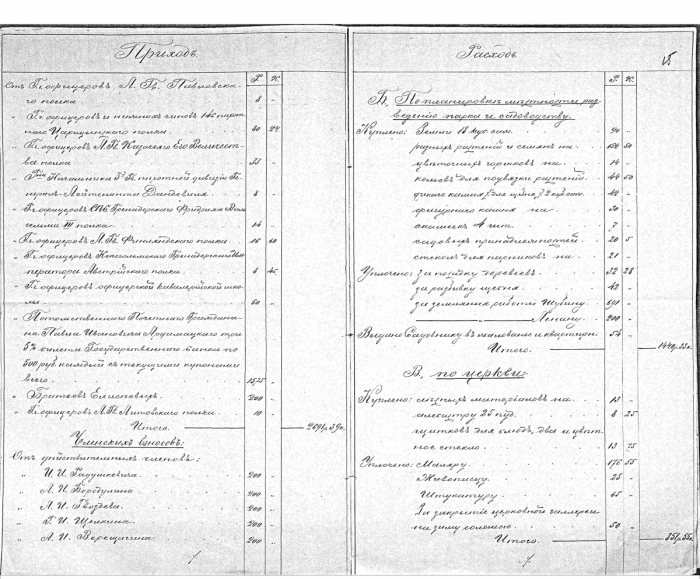 Приходъ
Р. К.
Отъ Гг. офицеровъ Л. Гв. Павловска-
го полка 8 -
" Гг. офицеровъ и нижнихъ чиновъ 146 пѣхот-
наго Царицынскаго полка
" Гг. офицеровъ Л. Гв. Казачьяго Его Величест-
ва полка
" Начальника пѣхотной дивизіи Ге-
нералъ-Лейтенанта
" Гг. офицеровъ СПб. Гренадерскаго Фридриха Виль-
гельма III полка 14 -
" Гг. офицеровъ Л. Гв. Финляндскаго полка 16 60
" Гг. офицеровъ Кексгольмскаго Гренадерскаго Им-
ператора Австрійскаго полка 8 45
" Гг. офицеровъ офицерской кавалерійской шко-
лы 50 -
" Потомственнаго Почетнаго Граждани-
на Павла Ивановича три
5% билета Государственнаго банка по
500 руб. каждый съ текущими купонами
всего 1575 -
" Братьевъ Елисѣевыхъ 200 -
" Гг. офицеровъ Л. Гв. Литовскаго полка 10 -
Итого
Членскихъ взносовъ:
Отъ дѣйствительныхъ членовъ:
" И. И. 200 -
" Л. И. Бородулина 200 -
" Л. И. Гвоздева 200 -
" Г. И. Щелкина 200 -
" Л. И. Верещагина 200 -
Расходъ
Р. К.
Б. По планировкѣ мѣстности, раз-
веденію парка и садоводству.
Куплено: Земли 18 куб. саж. 94 -
разныхъ растеній и сѣмянъ на 50
цвѣточныхъ горшковъ на 14 -
кольевъ для подвязки растеній 44 50
дикаго камня для щебня куб. саж.
камня на
4 шт. 7 -
садовыхъ принадлежностей 20 5
стеколъ для парниковъ на 21 -
Уплочено: за посадку деревьевъ 52 28
за разбивку щебня 42 -
за земляныя работы Шубину 591 -
Ленину 200 -
Выдано Садовнику въ жалованье и квартирн. 54
Итого
В. по церкви:
Куплено: матеріаловъ на 13 -
алебастру 25 пуд. 8 25
щитковъ для два и цвѣт-
ное стекло 13 75
Уплочено: Маляру 176 55
Живописцу 25 -
Штукатуру 65 -
За закрытіе церковной галлереи
на зиму соломою 50 -
Итого